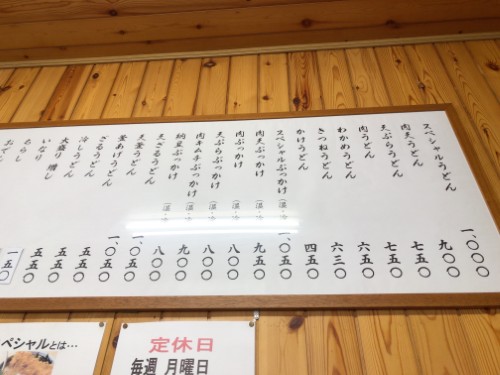 スペシャルうどん 一、〇〇〇
肉天うどん 九〇〇
天ぷらうどん 七五〇
肉うどん 七五〇
わかめうどん 六五〇
きつねうどん 六三〇
かけうどん 四五〇
スペシャルぶっかけ(温・冷) 一、〇五〇
肉天ぶっかけ(温・冷) 九五〇
肉ぶっかけ(温・冷) 八〇〇
天ぷらぶっかけ(温・冷) 八〇〇
肉キムチぶっかけ(温・冷) 九〇〇
納豆ぶっかけ(温・冷) 八〇〇
天ざるうどん 一、〇五〇
天釜うどん 一、〇〇〇
釜あげうどん 五五〇
ざるうどん 五五〇
冷しうどん 五五〇
大盛り増し 一五〇
いなり
ちらし
おでん
ペシャルとは…
定休日
毎週 月曜日